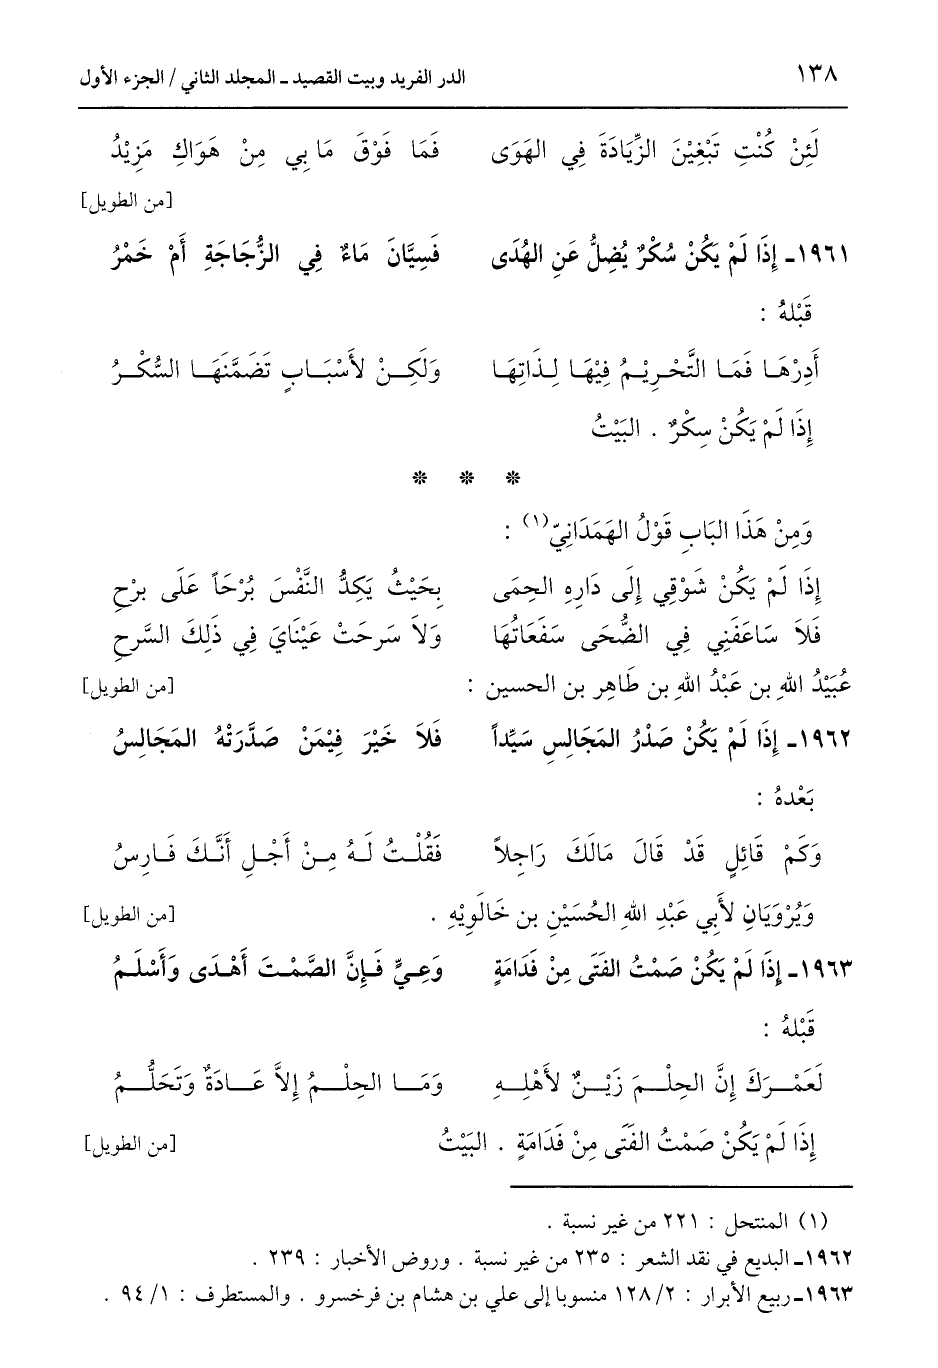 ١٣٨ الدر الفريد وبيت القصيد ـ المجلد الثاني / الجزء الأول
لَئِنْ كُنْتِ تَبْغِيْنَ الزِّيَادَةَ فِي الهَوَى فَمَا فَوْقَ مَا بِي مِنْ هَوَاكِ مَزِيْدُ
[من الطويل]
١٩٦١ـ إِذَا لَمْ يَكُنْ سُكْرٌ يُضِلُّ عَنِ الهُدَى فَسِيَّانَ مَاءٌ فِي الزُّجَاجَةِ أَمْ خَمْرُ
قَبْلهُ :
أَدِرْهَا فَمَا التَّحْرِيْمُ فِيْهَا لِذَاتِهَا وَلَكِنْ لأَسْبَابٍ تَضَمَّنَهَا السُّكْرُ
إِذَا لَمْ يَكُنْ سِكْرٌ . البَيْتُ
* * *
وَمِنْ هَذَا البَابِ قَوْلُ الهَمَدَانِيّ(١) :
إِذَا لَمْ يَكُنْ شَوْقِي إِلَى دَارِهِ الحِمَى بِحَيْثُ يَكِدُّ النَّفْسَ بُرْحَاً عَلَى بَرْحِ
فَلاَ سَاعَفَنِي فِي الضُّحَى سَفَعَاتُهَا وَلاَ سَرحَتْ عَيْنَايَ فِي ذَلِكَ السَّرحِ
عُبَيْدُ اللهِ بن عَبْدُ اللهِ بن طَاهِر بن الحسين : [من الطويل]
١٩٦٢ـ إِذَا لَمْ يَكُنْ صَدْرُ المَجَالِسِ سَيِّداً فَلاَ خَيْرَ فِيْمَنْ صَدَّرَتْهُ المَجَالِسُ
بَعْدهُ :
وَكَمْ قَائِلٍ قَدْ قَالَ مَالَكَ رَاجِلاً فَقُلْتُ لَهُ مِنْ أَجْلِ أَنَّكَ فَارِسُ
وَيُرْوَيَانِ لأَبِي عَبْدِ اللهِ الحُسَيْنِ بن خَالَوِيْهِ . [من الطويل]
١٩٦٣ـ إِذَا لَمْ يَكُنْ صَمْتُ الفَتَى مِنْ فَدَامَةٍ وَعِيٍّ فَإِنَّ الصَّمْتَ أَهْدَى وَأَسْلَمُ
قَبْلهُ :
لَعَمْرَكَ إِنَّ الحِلْمَ زَيْنٌ لأَهْلِهِ وَمَا الحِلْمُ إِلاَّ عَادَةٌ وَتَحَلُّمُ
إِذَا لَمْ يَكُنْ صَمْتُ الفَتَى مِنْ فَدَامَةٍ . البَيْتُ [من الطويل]
(١) المنتحل : ٢٢١ من غير نسبة .
١٩٦٢ـ البديع في نقد الشعر : ٢٣٥ من غير نسبة . وروض الأخبار : ٢٣٩ .
١٩٦٣ـ ربيع الأبرار : ٢/ ١٢٨ منسوبا إلى علي بن هشام بن فرخسرو . والمستطرف : ١/ ٩٤ .